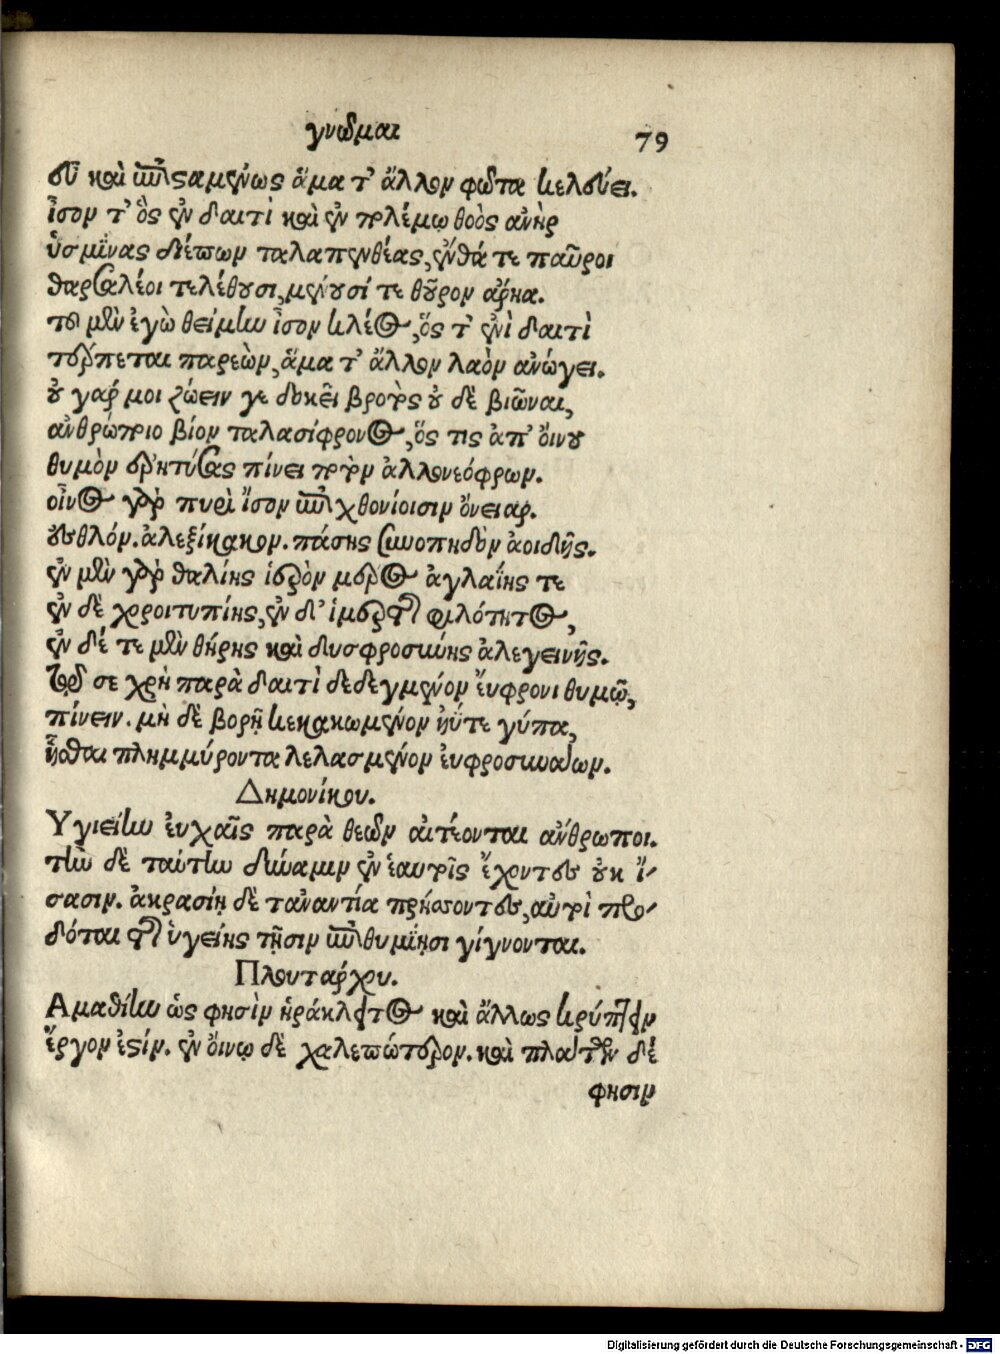 γνῶμαι 79
σῦ καὶ ἐπισαμένως ἅμα τ' ἄλλον φῶτα κελεύει.
ἶσον τ' ὃς ἐν δαιτὶ καὶ ἐν πολέμῳ θοὸς ἀνὴρ
ὑσμίνας διέπων ταλαπενθέας, ἔνθά τε παῦροι
θαρσαλέοι τελέθουσι, μένουσί τε θοῦρον ἄρηα.
τοῦ μὲν ἐγὼ θείμην ἶσον κλέος, ὅς τ' ἐνὶ δαιτὶ
τέρπεται παρεὼν, ἅμα τ' ἄλλον λαὸν ἀνώγει.
οὐ γάρ μοι ζώειν γε δοκεῖ βροτὸς οὐ δὲ βιῶναι,
ἀνθρώποιο βίον ταλασίφρονος, ὅς τις ἀπ' ὄινου
θυμὸν ἐρητύσας πίνει ποτὸν ἀλλονεόφρων.
οἶνος γὰρ πυρὶ ἴσον ἐπιχθονίοισιν ὄνειαρ.
ἐσθλόν. ἀλεξίκακον. πάσης συνοπηδὸν ἀοιδῆς.
ἐν μὲν γὰρ θαλίης ἱερὸν μέρος ἀγλαΐης τε
ἐν δὲ χοροιτυπίης, ἐν δ' ἱμερτῆς φιλότητος,
ἐν δέ τε μὲν θήρης καὶ δυσφροσύνης ἀλεγεινῆς.
τῷ σε χρὴ παρὰ δαιτὶ δεδεγμένον ἔυφρονι θυμῷ,
πίνειν. μὴ δὲ βορῇ κεκακωμένον ἠΰτε γύπα,
ἧσθαι πλημμύροντα λελασμένον ἐυφροσυνάων.
Δημονίκου.
Υγιείην ἐυχαῖς παρὰ θεῶν αἰτέονται ἄνθρωποι.
τὴν δὲ ταύτην δύναμιν ἐν ἑαυτοῖς ἔχοντες οὐκ ἴ-
σασιν. ἀκρασίῃ δὲ τἀναντία πρήσσοντες, αὐτοὶ προ-
δόται τῆς ὑγείης τῇσιν ἐπιθυμίῃσι γίγνονται.
Πλουτάρχου.
Αμαθίην ὡς φησὶν ἡράκλειτος καὶ ἄλλως κρύπτειν
ἔργον ἐςίν. ἐν ὄινῳ δὲ χαλεπώτερον. καὶ πλάτων δέ
φησιν